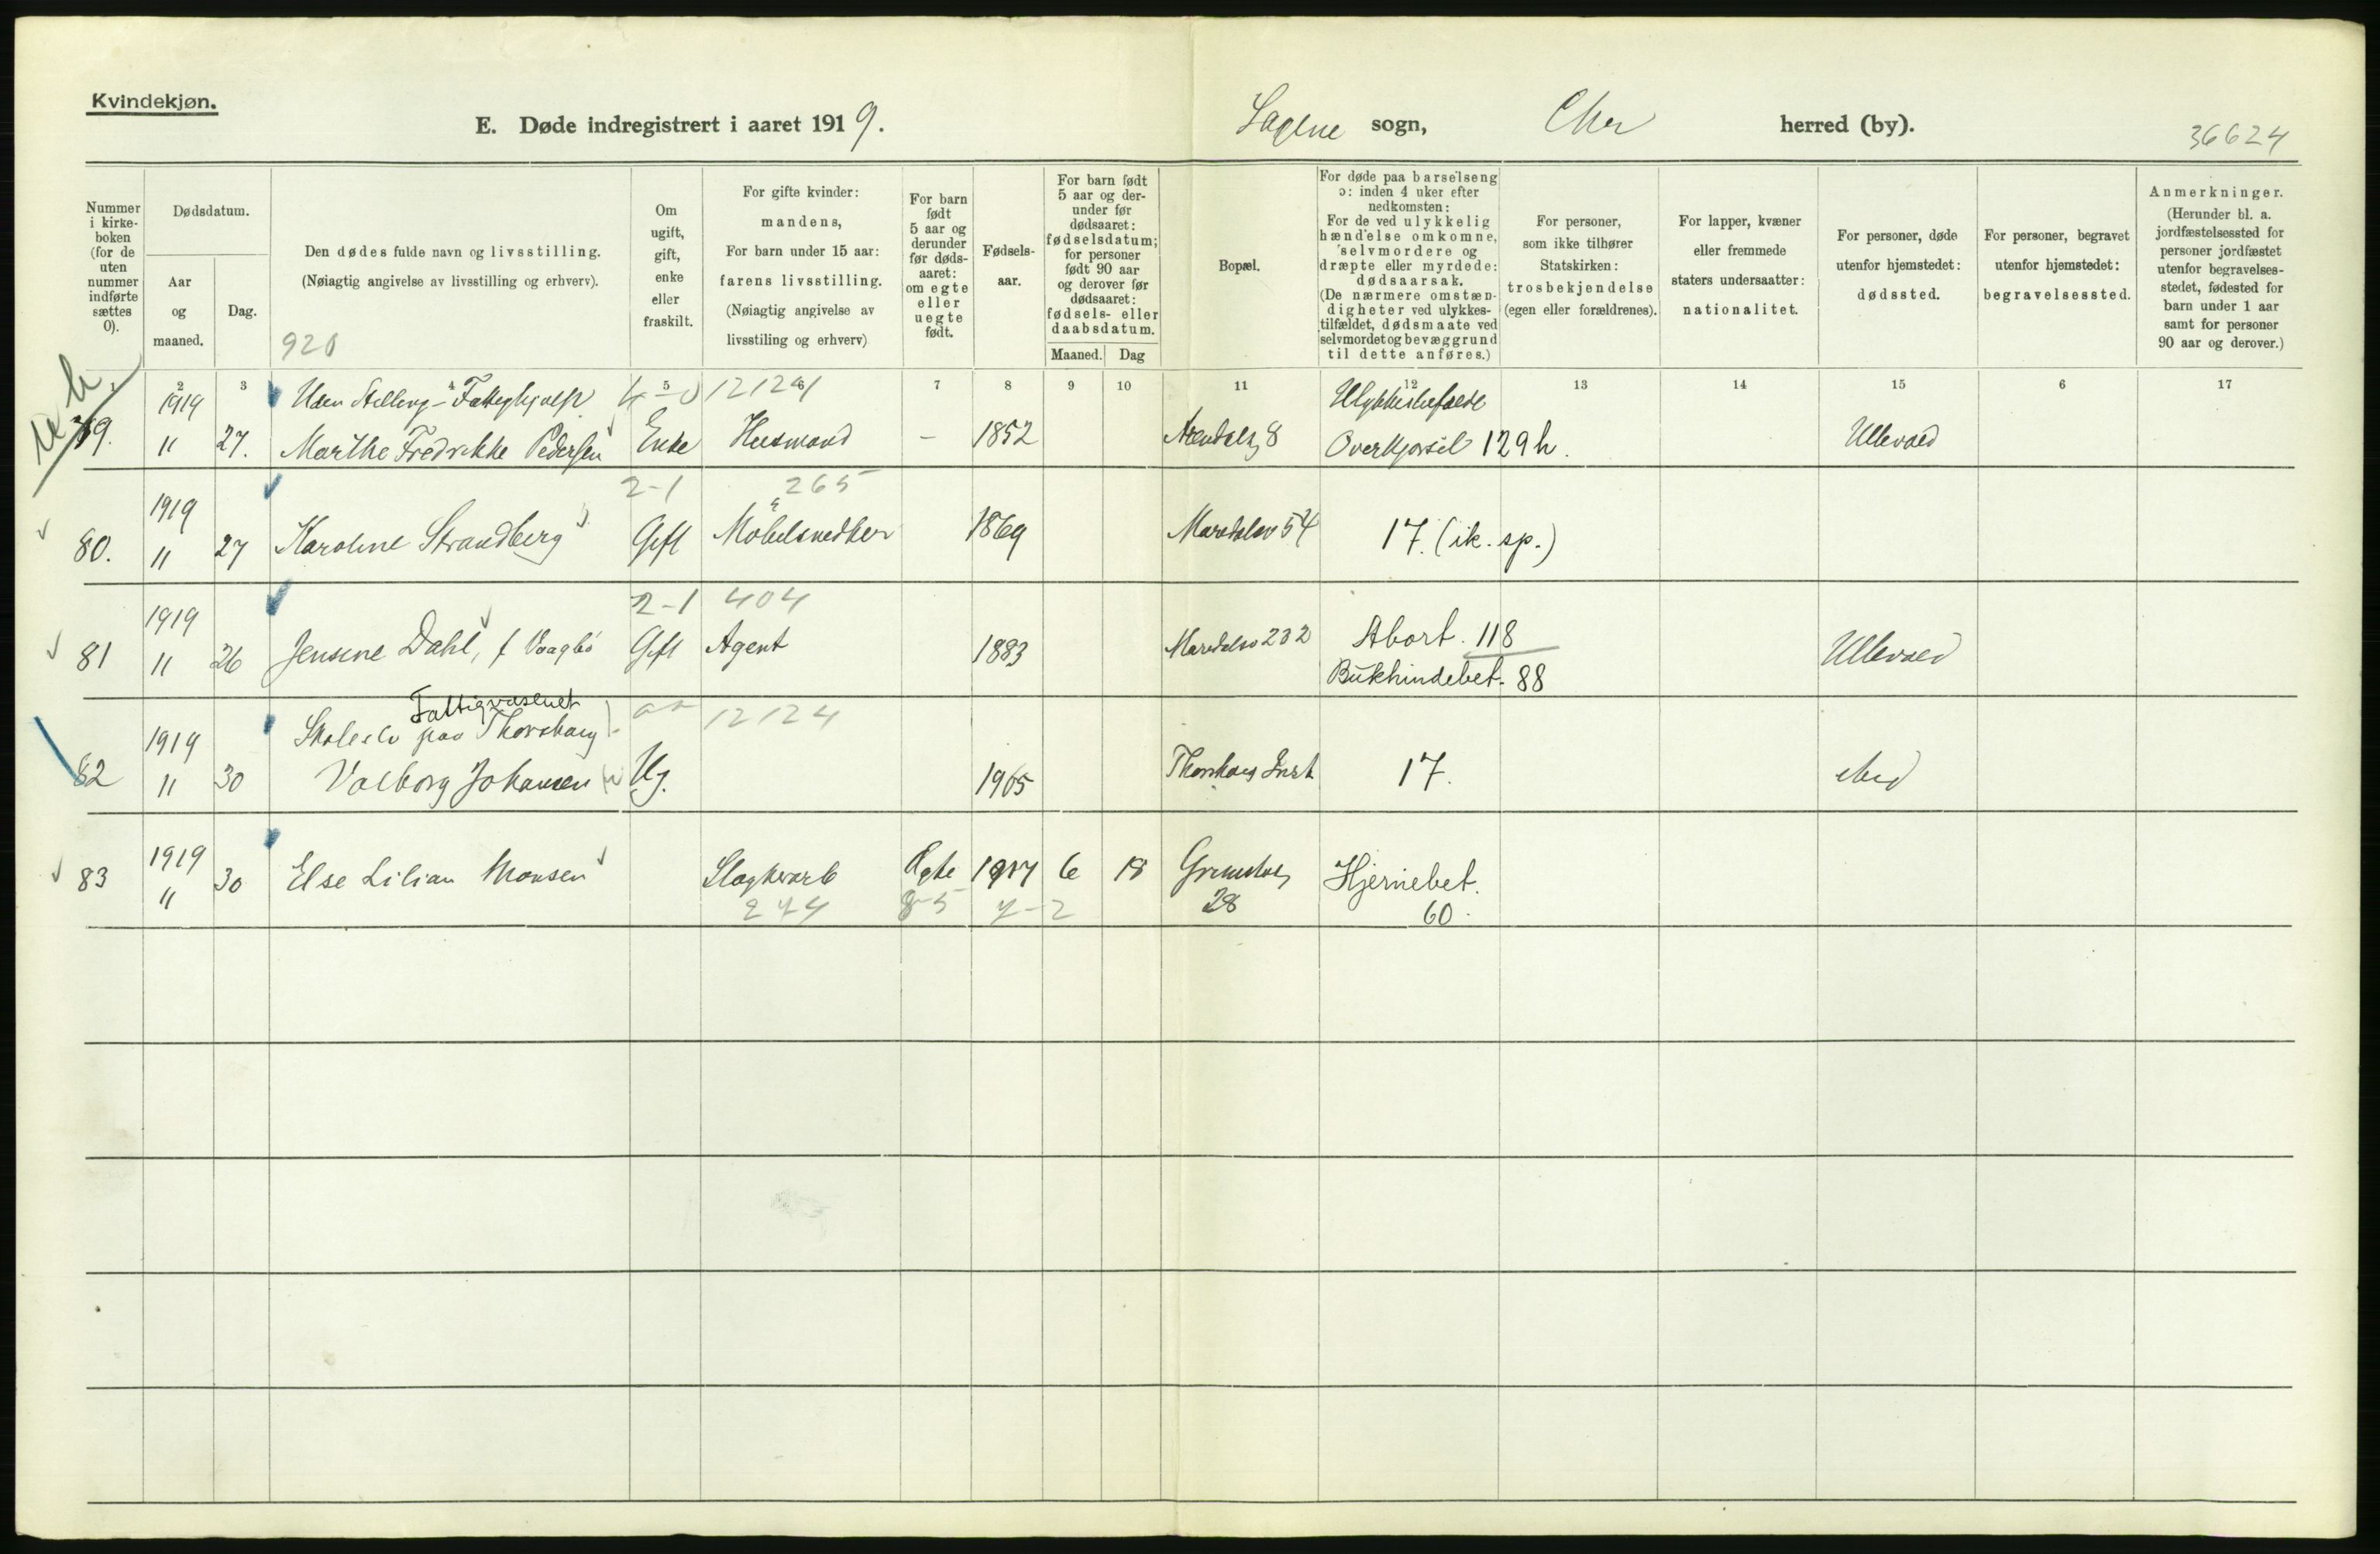 Kvindekjøn.
E. Døde indregistrert i aaret 1919.
Sagene sogn, Chr herred (by).
36624
Nummer i kirkeboken (for de uten nummer indførte sættes 0).
Dødsdatum.
Aar og maaned.
Dag.
Den dødes fulde navn og livsstilling.
(Nøiagtig angivelse av livsstilling og erhverv).
920
Om ugift, gift, enke eller fraskilt.
For gifte kvinder: mandens,
For barn under 15 aar: farens livsstilling.
(Nøiagtig angivelse av livsstiling og erhverv)
For barn født 5 aar og derunder før dødsaaret: om egte eller uegte født.
Fødselsaar.
For barn født 5 aar og derunder før dødsaaret: fødselsdatum; for personer født 90 aar og derover før dødsaaret: fødsels- eller daabsdatum.
Maaned. Dag
Bopæl.
For døde paa barselseng ɔ: inden 4 uker efter nedkomsten:
For de ved ulykkelig hændelse omkomne, selvmordere og dræpte eller myrdede: dødsaarsak.
(De nærmere omstændigheter ved ulykkestilfældet, dødsmaate ved selvmordet og bevæggrund til dette anføres.)
For personer, som ikke tilhører Statskirken: trosbekjendelse (egen eller forældrenes).
For lapper, kvæner eller fremmede staters undersaatter: nationalitet.
For personer, døde utenfor hjemstedet: dødssted.
For personer, begravet utenfor hjemstedet: begravelsessted.
Anmerkninger.
(Herunder bl. a. jordfæstelsessted for personer jordfæstet utenfor begravelsesstedet, fødested for barn under 1 aar samt for personer 90 aar og derover.)
1 2 3 4 5 6 7 8 9 10 11 12 13 14 15 6 17
1919 Uden Stilling - Fattighjælp 4-0 12124 Ulykkestilfælde
79. 11 27. Marthe Fredrikke Pedersen Enke Husmand - 1852 Arendalsg 8 Overkjørsel 129h. Ullevaal
2-1 265
1919
80. 11 27 Karoline Strandberg Gift Möbelsnedker 1869 Maridalsv 54 17. (ik. sp.)
2-1 404
1919
81 11 26 Jensine Dahl, f Vaagbö Gift Agent 1883 Maridalsv 232 Abort. 118 Ullevaal
Bukhindebet. 88
Fattigvæsenet
1919 Skoleelv paa Thorshaug 12124
82 11 30 Valborg Johansen Ug. 1905 Thorshaug Inst 17.
1919
83 11 30 Else Lilian Monsen Slagtersv Ægte 1917 6 18 Grimstadg 28 Hjernebet. 60.
274 8-5 7-2